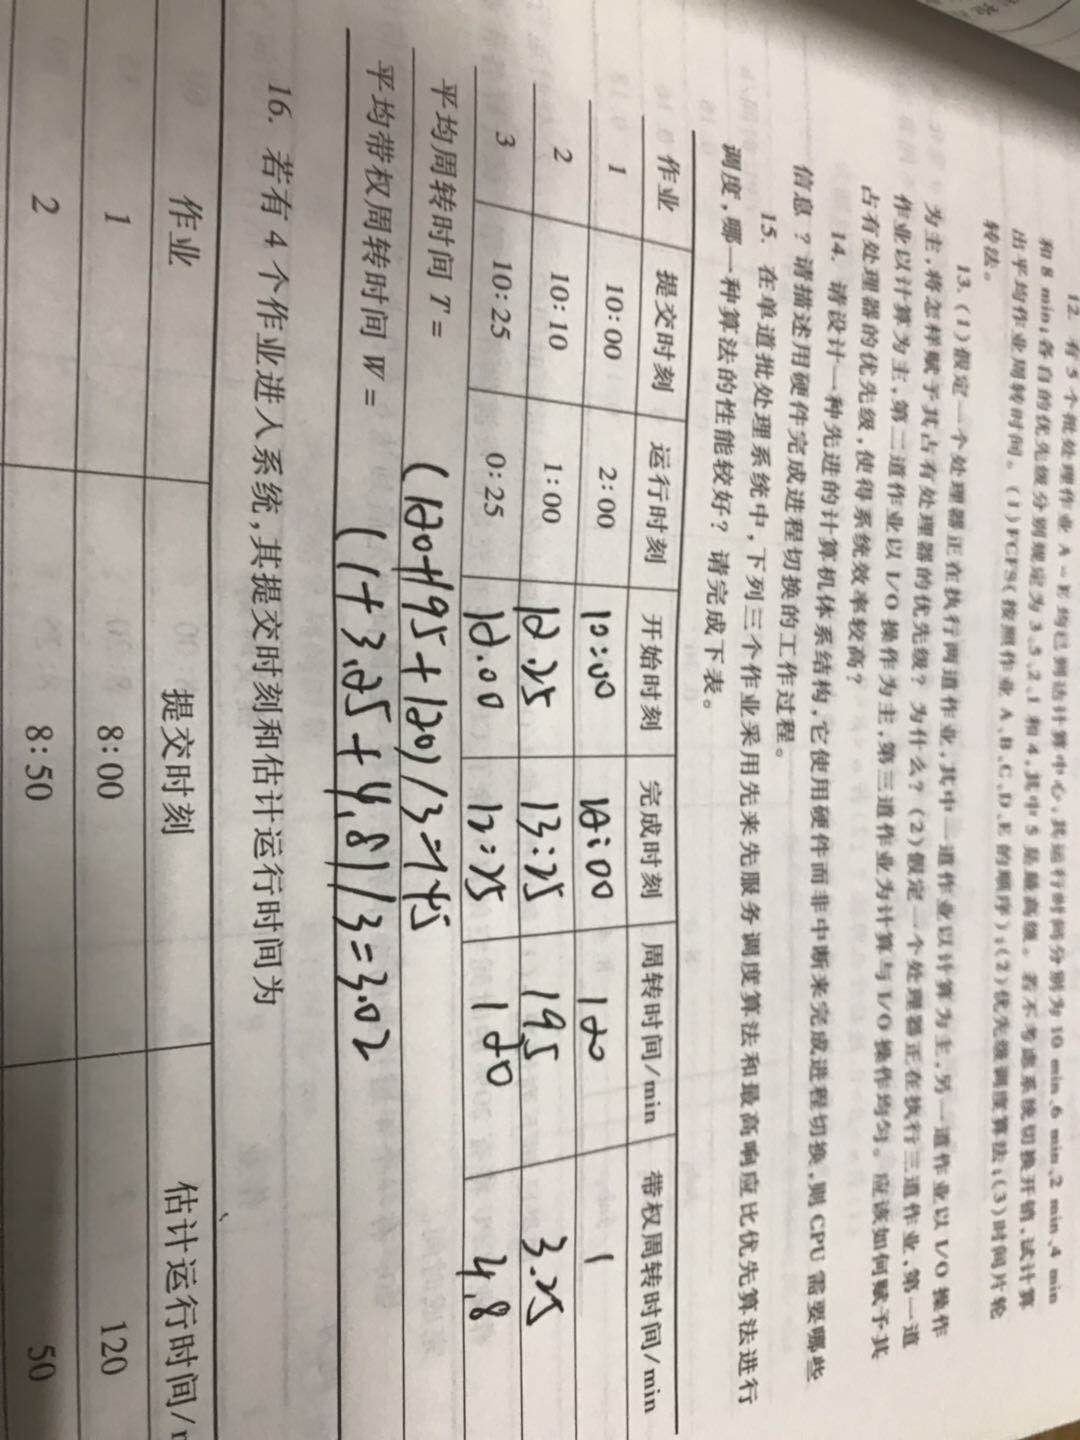 12. 有5个批处理作业A~E均已到达计算中心,其运行时间分别为10 min、6 min、2 min、4 min
和8 min;各自的优先级分别规定为3、5、2、1和4,其中5是最高级。若不考虑系统切换开销,试计算
出平均作业周转时间。(1)FCFS(按照作业A、B、C、D、E的顺序);(2)优先级调度算法;(3)时间片轮
转法。
13. (1)假定一个处理器正在执行两道作业,其中一道作业以计算为主,另一道作业以I/O操作
为主,将怎样赋予其占有处理器的优先级?为什么?(2)假定一个处理器正在执行三道作业,第一道
作业以计算为主,第二道作业以I/O操作为主,第三道作业为计算与I/O操作均匀。应该如何赋予其
占有处理器的优先级,使得系统效率较高?
14. 请设计一种先进的计算机体系结构,它使用硬件而非中断来完成进程切换,则CPU需要哪些
信息?请描述用硬件完成进程切换的工作过程。
15. 在单道批处理系统中,下列三个作业采用先来先服务调度算法和最高响应比优先算法进行
调度,哪一种算法的性能较好?请完成下表。
作业 提交时刻 运行时刻 开始时刻 完成时刻 周转时间/min 带权周转时间/min
1 10:00 2:00 10:00 12:00 120 1
2 10:10 1:00 12.25 13:25 195 3.25
3 10:25 0:25 12.00 12:25 120 4.8
平均周转时间 T = (120+195+120)/3=145
平均带权周转时间 W = (1+3.25+4.8)/3=3.02
16. 若有4个作业进入系统,其提交时刻和估计运行时间为
作业 提交时刻 估计运行时间/
1 8:00 120
2 8:50 50